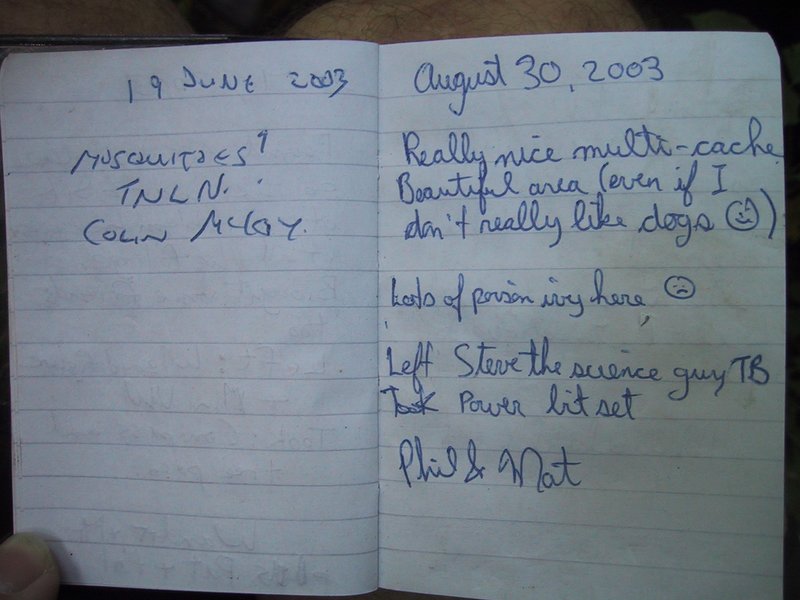 19 JUNE 2003
MOSQUITOES!
TNLN.
COLIN
August 30, 2003
Really nice multi-cache
Beautiful area (even if I
don't really like dogs ☺)
Lots of poison ivy here ☹
Left Steve the science guy TB
Took Power bit set
Phil & Mat